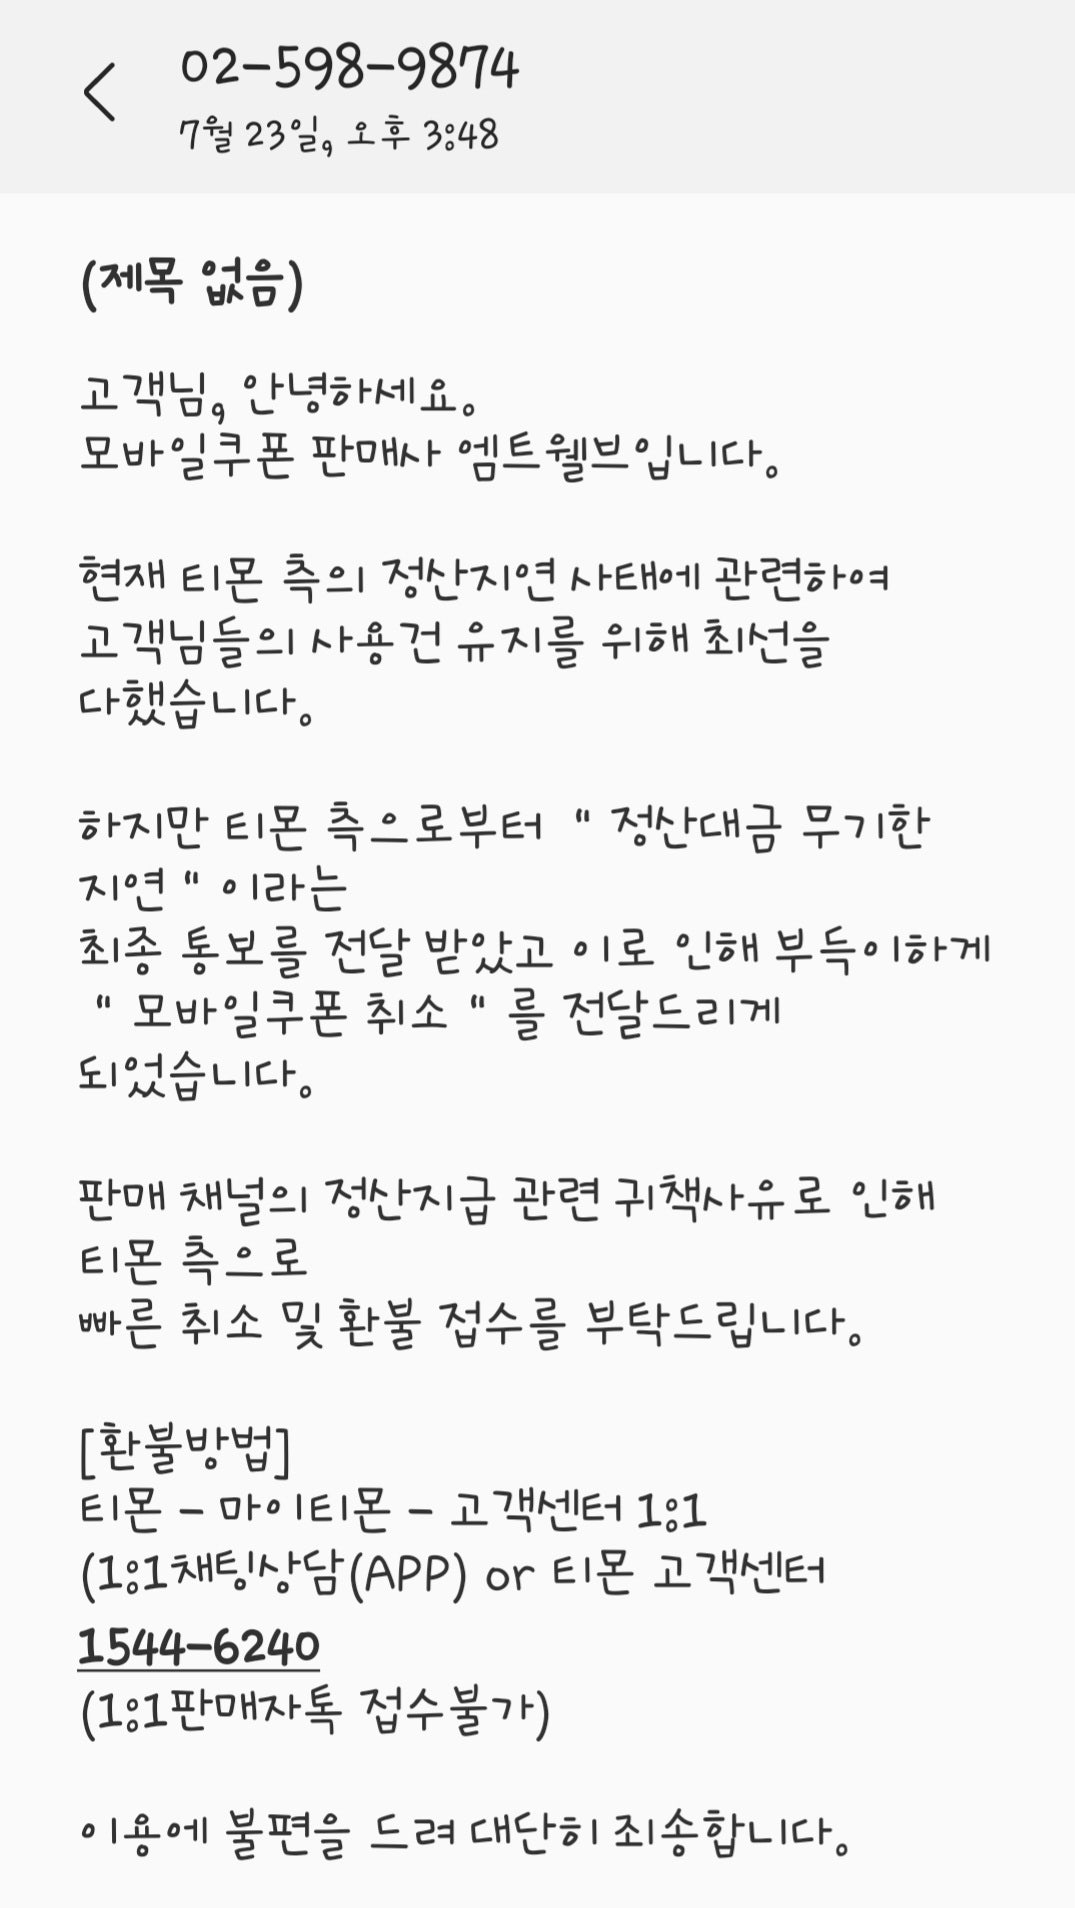 02-598-9874
7월 23일, 오후 3:48
(제목 없음)
고객님, 안녕하세요.
모바일쿠폰 판매사 엠트웰브입니다.
현재 티몬 측의 정산지연 사태에 관련하여
고객님들의 사용건 유지를 위해 최선을
다했습니다.
하지만 티몬 측으로부터 " 정산대금 무기한
지연 " 이라는
최종 통보를 전달 받았고 이로 인해 부득이하게
" 모바일쿠폰 취소 " 를 전달드리게
되었습니다.
판매 채널의 정산지급 관련 귀책사유로 인해
티몬 측으로
빠른 취소 및 환불 접수를 부탁드립니다.
[환불방법]
티몬 - 마이티몬 - 고객센터 1:1
(1:1채팅상담(APP) or 티몬 고객센터
1544-6240
(1:1판매자톡 접수불가)
이용에 불편을 드려 대단히 죄송합니다.